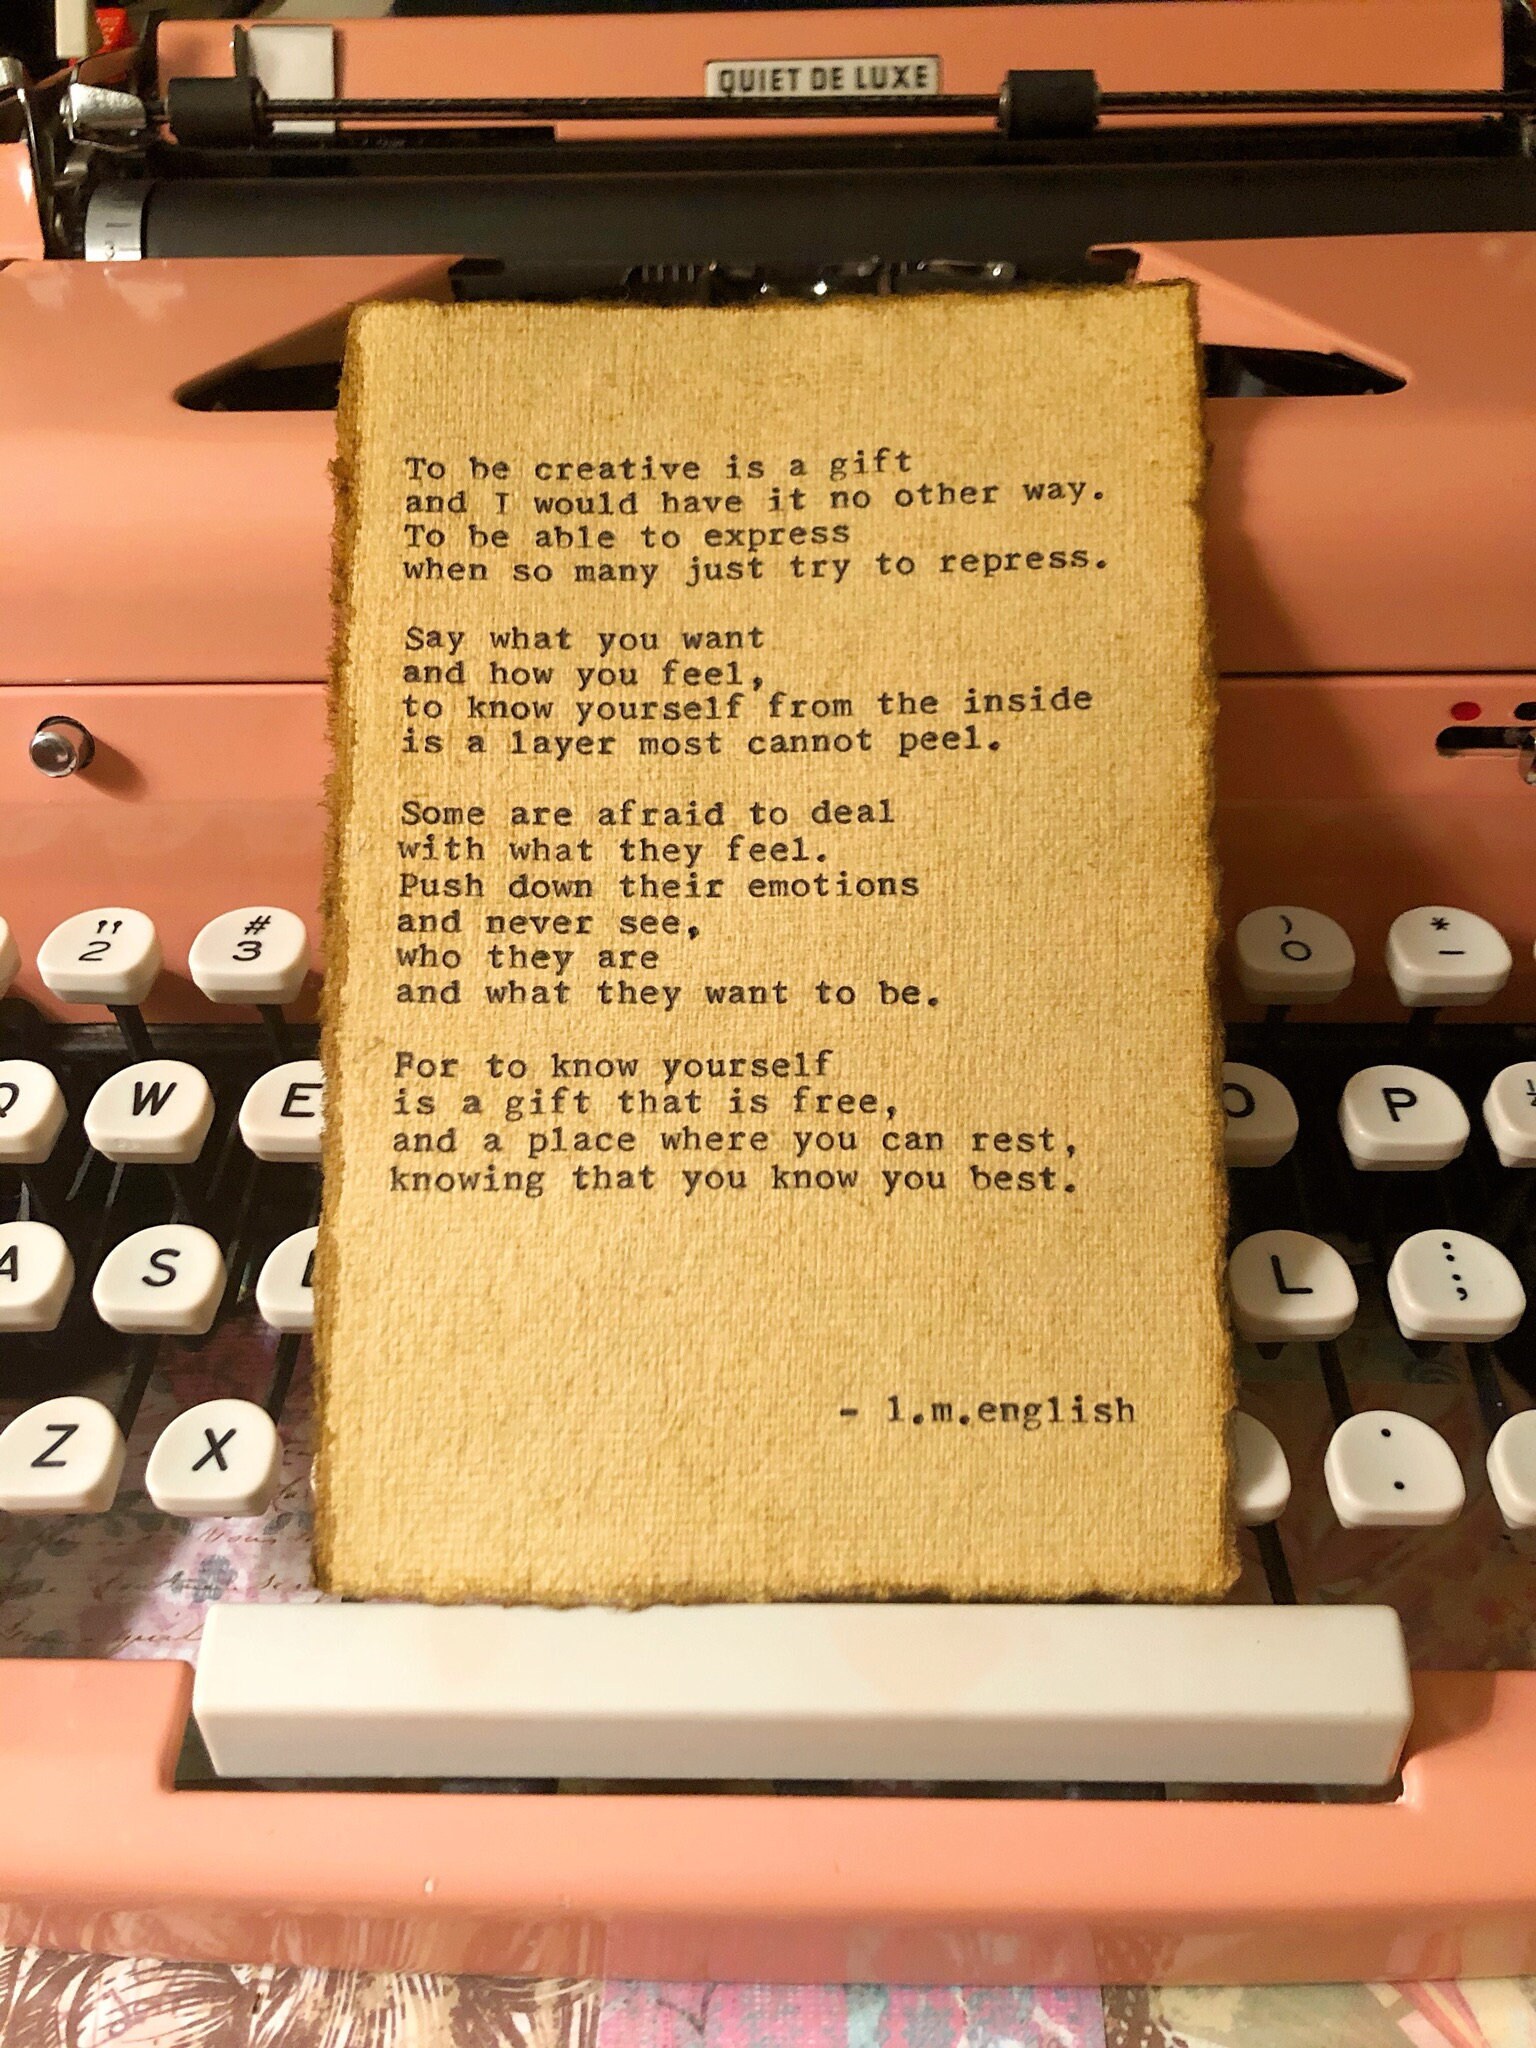 QUIET DE LUXE
To be creative is a gift
and I would have it no other way.
To be able to express
when so many just try to repress.
Say what you want
and how you feel,
to know yourself from the inside
is a layer most cannot peel.
Some are afraid to deal
with what they feel.
Push down their emotions
and never see,
who they are
and what they want to be.
For to know yourself
is a gift that is free,
and a place where you can rest,
knowing that you know you best.
- l.m.english
" #
2 3
) *
0 -
Q W E
O P
A S
L : ;
Z X
. .